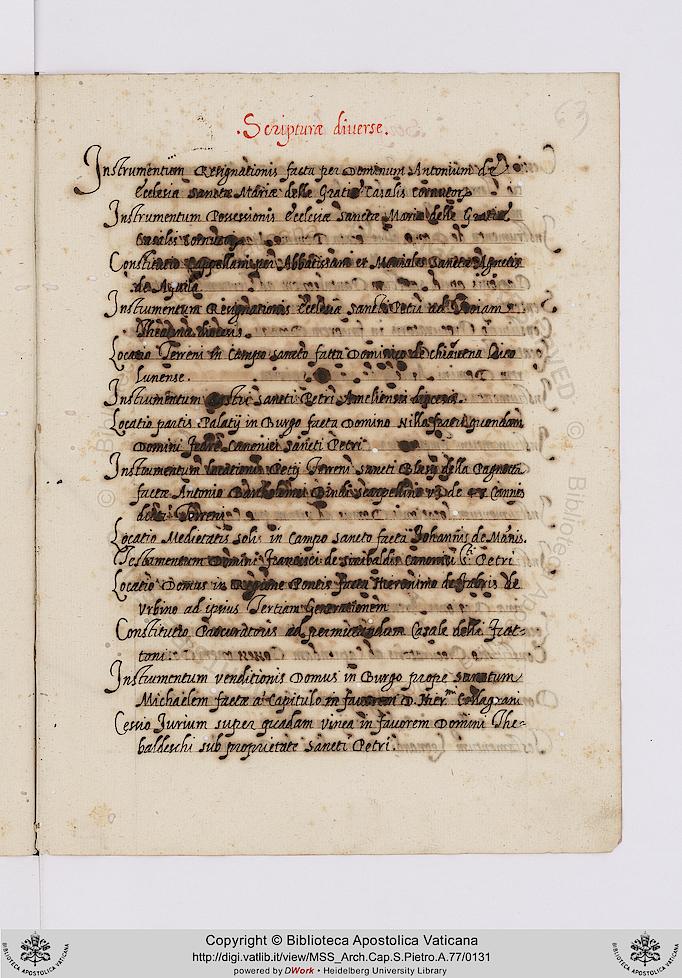 63
.Scripturæ diuerse.
Instrumentum Resignationis facta per Dominum Antonium de
Ecclesia Sanctæ Mariæ delle Gratie Casalis
Instrumentum Possessionis Ecclesiæ Sanctæ Mariæ delle Gratie
Casalis
Constitutio Cappellani per Abbatissam et Moniales Sanctæ Agnetis
de Aquila
Instrumentum Resignationis Ecclesiæ Sancti Petri ad
Theatina diocesis.
Locatio Terreni in Campo sancto facta Dominico de chiauena
lunense.
Instrumentum Sancti Petri Ameliensis diocesis.
Locatio partis Palatij in Burgo facta Domino quondam
Domini Canonici Sancti Petri
Instrumentum locationis Petij Terreni Sancti Blasij della Pagnotta
factæ Antonio Bartholomei scarpellino de Cannis
dicti Terreni
Locatio Medietatis soli in Campo sancto facta Johannis de
Testamentum Domini Francisci de sinibaldis Canonici S.ti Petri
Locatio Domus in Regione Pontis facta Hieronimo de fabris de
Vrbino ad ipsius Tertiam Generationem
Constitutio Procuratoris ad permutandum Casale della Frat=
toni
Instrumentum venditionis Domus in Burgo prope Sanctum
Michaelem factæ a Capitulo in fauorem D. Hier.mi
Cessio Jurium super quadam vinea in fauorem Domini The=
baldeschi sub proprietate Sancti Petri.
Copyright © Biblioteca Apostolica Vaticana
http://digi.vatlib.it/view/MSS_Arch.Cap.S.Pietro.A.77/0131
powered by DWork • Heidelberg University Library